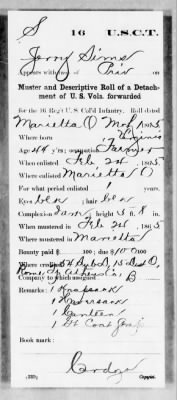 S 16 U.S.C.T.
Jerry Sims
Appears with rank of Priv on
Muster and Descriptive Roll of a Detach-
ment of U. S. Vols. forwarded
for the 16 Reg't U. S. Col'd Infantry. Roll dated
Marietta O Mch 1865
Where born Virginia
Age 44 y'rs; occupation Farmer
When enlisted Feb 22, 1865
Where enlisted Marietta O
For what period enlisted 1 years.
Eyes blk; hair blk
Complexion Dark; height 5 ft. 8 in.
When mustered in Feb 22, 1865
Where mustered in Marietta
Bounty paid $ 100; due $ 100
Where credited 15 Dist O,
Rome Tp Athens Co
Company to which assigned B
Remarks: 1 Knapsack
1 Haversack
1 Canteen
1 Gt Coat
Book mark:
Copyist.